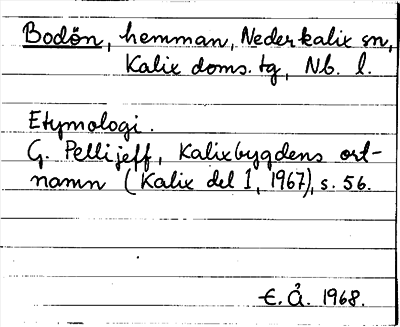 Bodön, hemman, Nederkalix sn,
Kalix doms. tg, Nb. l.
Etymologi.
G. Pellijeff, Kalixbygdens ort-
namn (Kalix del I, 1967), s. 56.
E. Å. 1968.